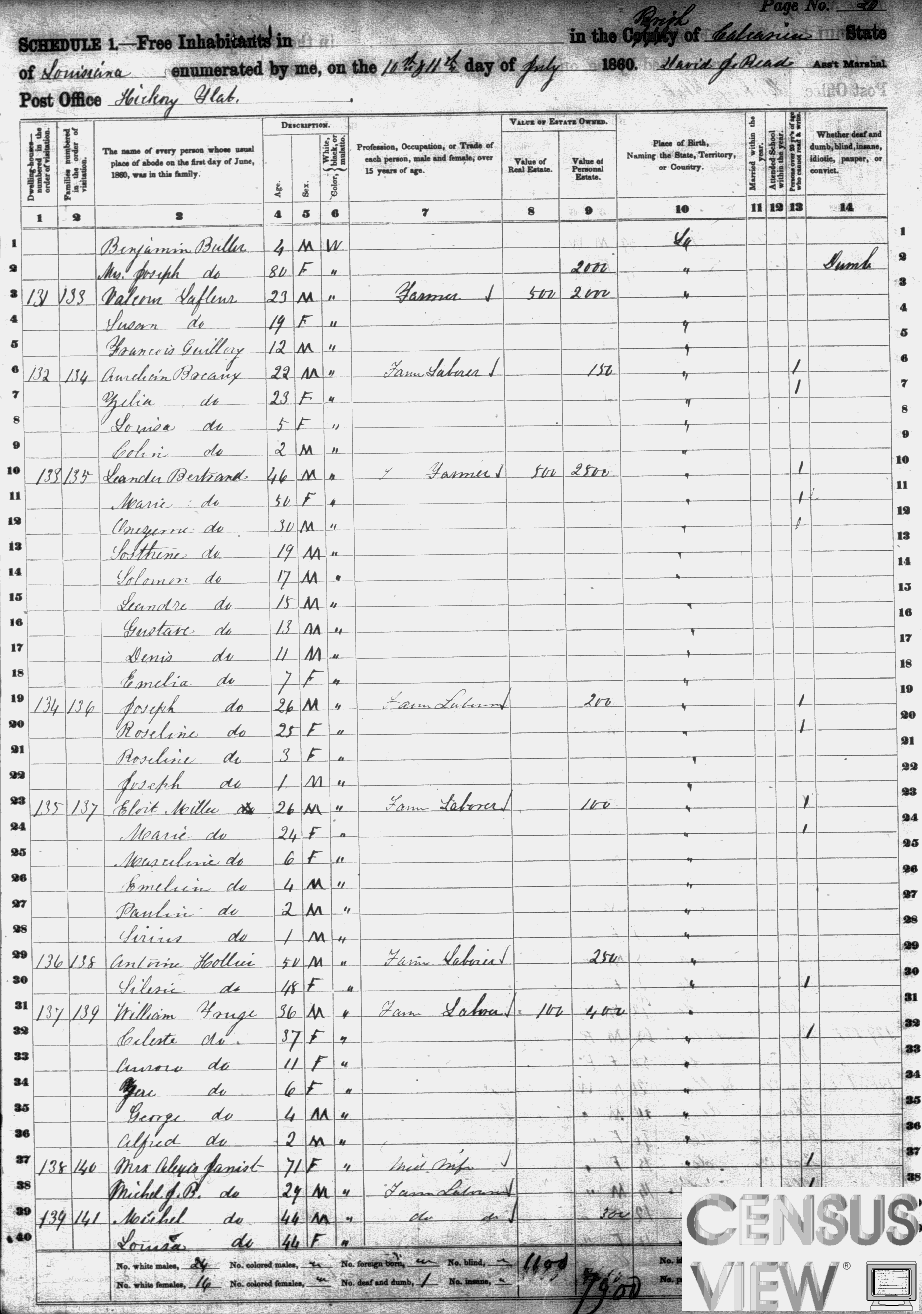 Page No. 20
SCHEDULE 1.—Free Inhabitants in in the County Parish of Calcasieu State
of Louisiana enumerated by me, on the 10th & 11th day of July 1860. David J. Read Ass't Marshal
Post Office Hickory Flat.
Dwelling-houses—numbered in the order of visitation. Families numbered in the order of visitation. The name of every person whose usual place of abode on the first day of June, 1860, was in this family. DESCRIPTION. Age. Sex. Color, White, black, or mulatto. Profession, Occupation, or Trade of each person, male and female, over 15 years of age. VALUE OF ESTATE OWNED. Value of Real Estate. Value of Personal Estate. Place of Birth, Naming the State, Territory, or Country. Married within the year. Attended School within the year. Persons over 20 y'rs of age who cannot read & write. Whether deaf and dumb, blind, insane, idiotic, pauper, or convict.
1 2 3 4 5 6 7 8 9 10 11 12 13 14
1 Benjamin Buller 4 M W La 1
2 Mrs. Joseph do 80 F " 2000 " Dumb 2
3 131 133 Valcour Lafleur 23 M " Farmer 500 2000 " 3
4 Susan do 19 F " " 4
5 Francois Guillory 12 M " " 5
6 132 134 Aurelien Breaux 22 M " Farm Laborer 150 " 1 6
7 Zelia do 23 F " " 1 7
8 Louisa do 5 F " " 8
9 Colin do 2 M " " 9
10 133 135 Leander Bertrand 46 M " Farmer 500 2500 " 1 10
11 Marie do 50 F " " 1 11
12 do 30 M " " 1 12
13 Sosthene do 19 M " " 13
14 Solomon do 17 M " " 14
15 Leandre do 15 M " " 15
16 Gustave do 13 M " " 16
17 Denis do 11 M " " 17
18 Emelia do 7 F " " 18
19 134 136 Joseph do 26 M " Farm Laborer 200 " 1 19
20 Roseline do 25 F " " 1 20
21 Roseline do 3 F " " 21
22 Joseph do 1 M " " 22
23 135 137 Eloit Miller 26 M " Farm Laborer 100 " 1 23
24 Marie do 24 F " " 1 24
25 Masceline do 6 F " " 25
26 Emelien do 4 M " " 26
27 Paulin do 2 M " " 27
28 Sirius do 1 M " " 28
29 136 138 Antoine Hollier 50 M " Farm Laborer 250 " 29
30 Silesie do 48 F " " 1 30
31 137 139 William Fruge 36 M " Farm Laborer 100 400 " 31
32 Celeste do 37 F " " 1 32
33 Aurora do 11 F " " 33
34 do 6 F " " 34
35 George do 4 M " " 35
36 Alfred do 2 M " " 36
37 138 140 Mrs Alexis Janist 71 F " Mid Wife " 1 37
38 Michel J. B. do 29 M " Farm Laborer " 38
39 139 141 Michel do 44 M " do do 300
40 Louisa do 44 F "
No. white males, 24 No. colored males, No. foreign born, No. blind, 1100
No. white females, 16 No. colored females, No. deaf and dumb, 1 No. insane, 7900
CENSUS
VIEW®